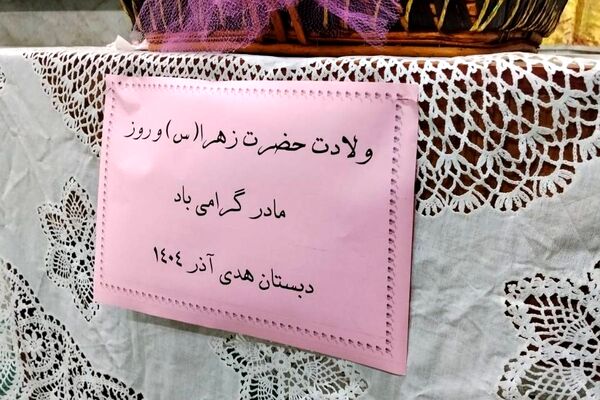 ولادت حضرت زهرا(س) و روز
مادر گرامی باد
دبستان هدی آذر ۱۴۰۴